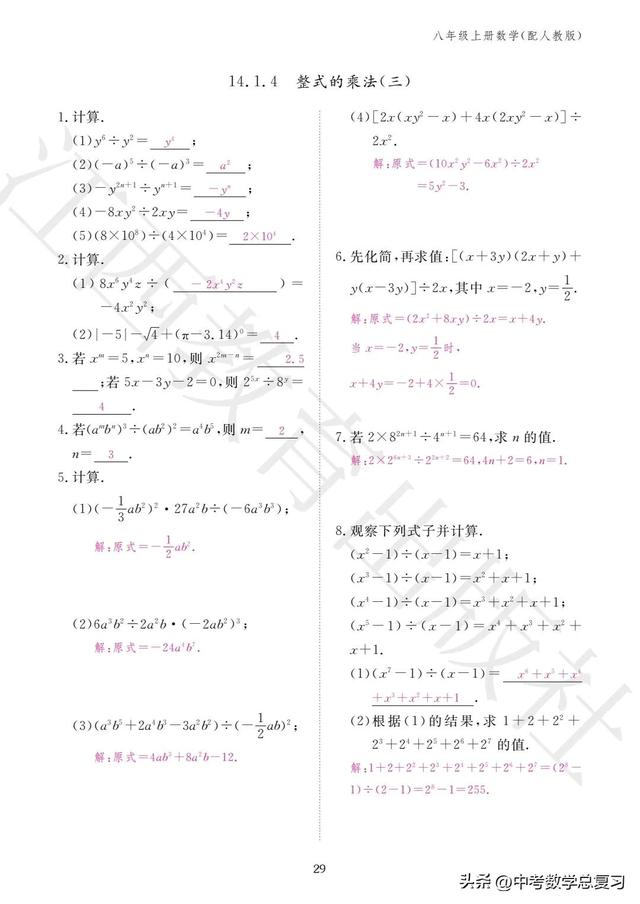 八年级上册数学(配人教版)
14.1.4 整式的乘法(三)
1.计算.
(1)y⁶÷y²= y⁴ ;
(2)(-a)⁵÷(-a)³= a² ;
(3)-y²ⁿ⁺¹÷yⁿ⁺¹= -yⁿ ;
(4)-8xy²÷2xy= -4y ;
(5)(8×10⁸)÷(4×10⁴)= 2×10⁴ .
2.计算.
(1)8x⁶y⁴z÷( -2x⁴y²z )=
-4x²y²;
(2)|-5|-√4+(π-3.14)⁰= 4 .
3.若xᵐ=5,xⁿ=10,则x²ᵐ⁻ⁿ= 2.5
;若5x-3y-2=0,则2⁵ˣ÷8ʸ=
4 .
4.若(aᵐbⁿ)³÷(ab²)²=a⁴b⁵,则m= 2 ,
n= 3 .
5.计算.
(1)(-1/3ab²)²·27a²b÷(-6a³b³);
解:原式=-1/2ab².
(2)6a³b²÷2a²b·(-2ab²)³;
解:原式=-24a⁴b⁷.
(3)(a³b⁵+2a⁴b³-3a²b²)÷(-1/2ab)²;
解:原式=4ab³+8a²b-12.
(4)[2x(xy²-x)+4x(2xy²-x)]÷
2x².
解:原式=(10x²y²-6x²)÷2x²
=5y²-3.
6.先化简,再求值:[(x+3y)(2x+y)+
y(x-3y)]÷2x,其中x=-2,y=1/2.
解:原式=(2x²+8xy)÷2x=x+4y.
当x=-2,y=1/2时,
x+4y=-2+4×1/2=0.
7.若2×8²ⁿ⁺¹÷4ⁿ⁺¹=64,求n的值.
解:2×2⁶ⁿ⁺³÷2²ⁿ⁺²=64,4n+2=6,n=1.
8.观察下列式子并计算.
(x²-1)÷(x-1)=x+1;
(x³-1)÷(x-1)=x²+x+1;
(x⁴-1)÷(x-1)=x³+x²+x+1;
(x⁵-1)÷(x-1)=x⁴+x³+x²+
x+1.
(1)(x⁷-1)÷(x-1)= x⁶+x⁵+x⁴
+x³+x²+x+1 .
(2)根据(1)的结果,求1+2+2²+
2³+2⁴+2⁵+2⁶+2⁷的值.
解:1+2+2²+2³+2⁴+2⁵+2⁶+2⁷=(2⁸-
1)÷(2-1)=2⁸-1=255.
江西教育出版社
29
头条@中考数学总复习